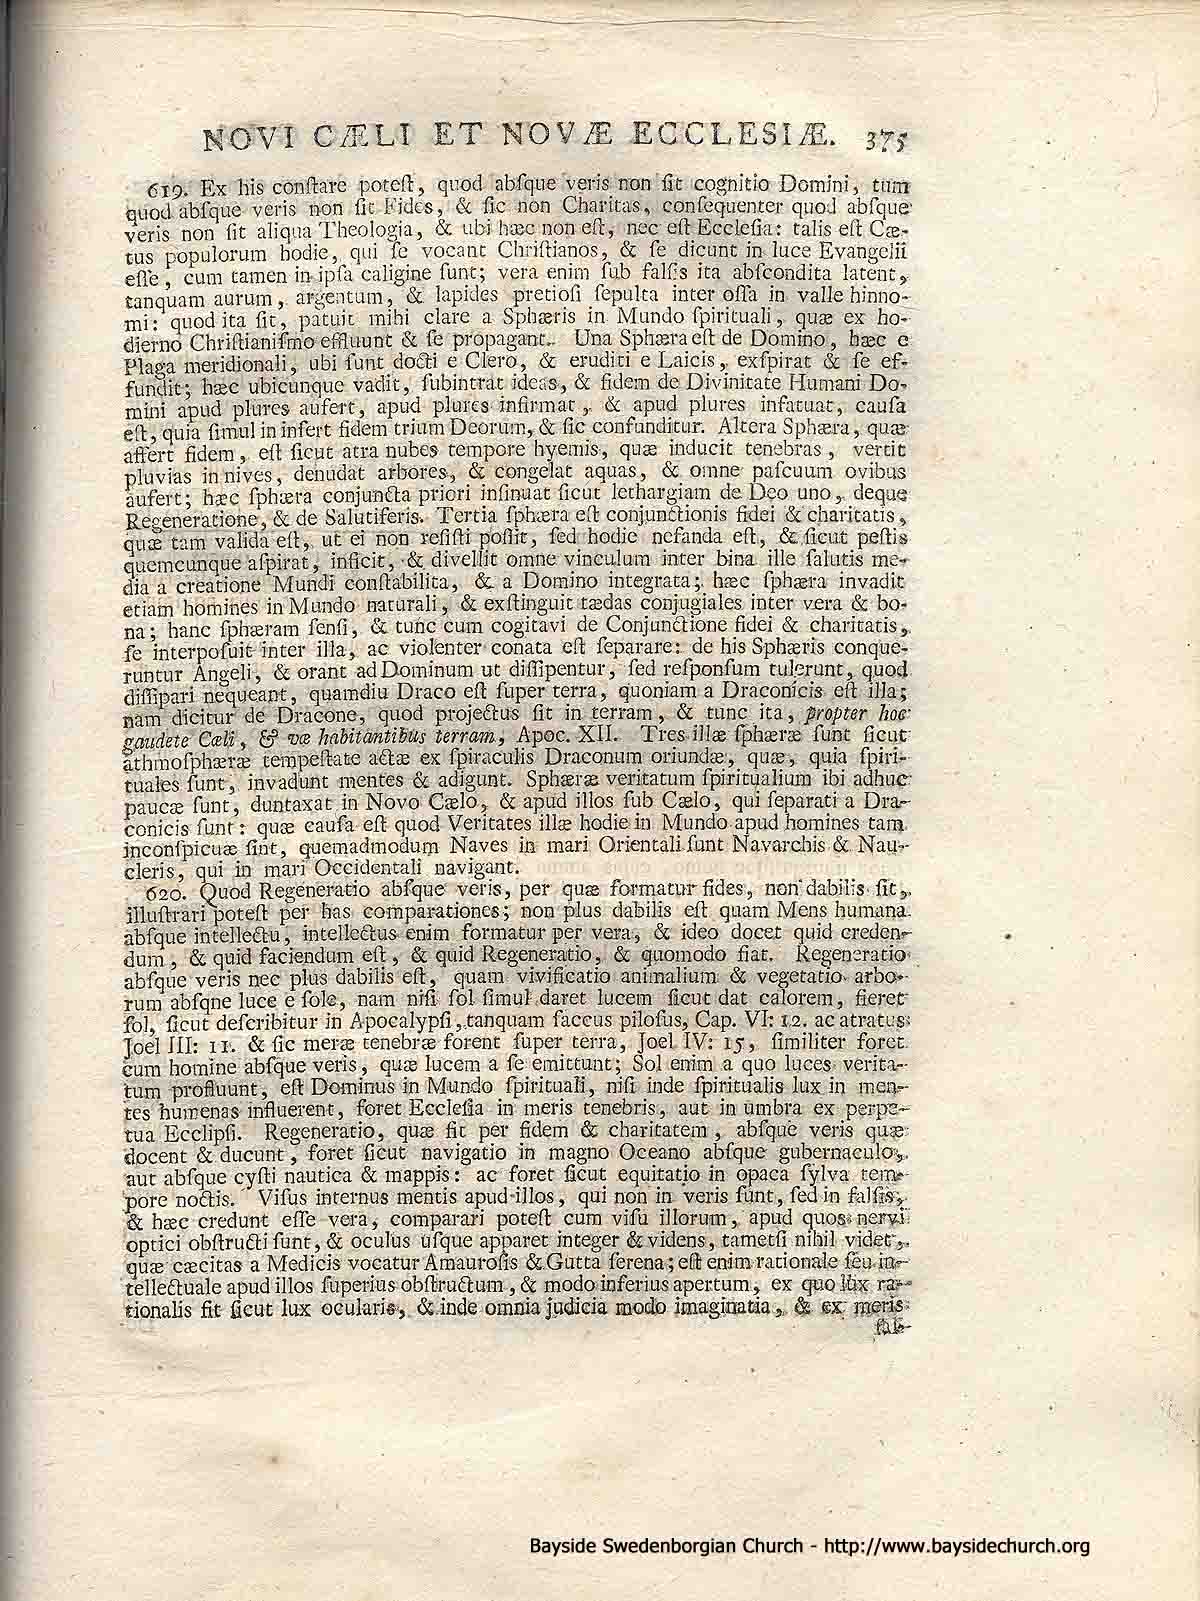 NOVI CÆLI ET NOVÆ ECCLESIÆ. 375
619. Ex his conſtare poteſt, quod abſque veris non ſit cognitio Domini, tum
quod abſque veris non ſit Fides, & ſic non Charitas, conſequenter quod abſque
veris non ſit aliqua Theologia, & ubi hæc non eſt, nec eſt Eccleſia: talis eſt Cæ-
tus populorum hodie, qui ſe vocant Chriſtianos, & ſe dicunt in luce Evangelii
eſſe, cum tamen in ipſa caligine ſunt; vera enim ſub falſis ita abſcondita latent,
tanquam aurum, argentum, & lapides pretioſi ſepulta inter oſſa in valle hinno-
mi: quod ita ſit, patuit mihi clare a Sphæris in Mundo ſpirituali, quæ ex ho-
dierno Chriſtianiſmo effluunt & ſe propagant. Una Sphæra eſt de Domino, hæc e
Plaga meridionali, ubi ſunt docti e Clero, & eruditi e Laicis, exſpirat & ſe ef-
fundit; hæc ubicunque vadit, ſubintrat ideas, & fidem de Divinitate Humani Do-
mini apud plures aufert, apud plures infirmat, & apud plures infatuat, cauſa
eſt, quia ſimul in infert fidem trium Deorum, & ſic confunditur. Altera Sphæra, quæ
affert fidem, eſt ſicut atra nubes tempore hyemis, quæ inducit tenebras, vertit
pluvias in nives, denudat arbores, & congelat aquas, & omne paſcuum ovibus
aufert; hæc ſphæra conjuncta priori inſinuat ſicut lethargiam de Deo uno, deque
Regeneratione, & de Salutiferis. Tertia ſphæra eſt conjunctionis fidei & charitatis,
quæ tam valida eſt, ut ei non reſiſti poſſit, ſed hodie nefanda eſt, & ſicut peſtis
quemcunque aſpirat, inficit, & divellit omne vinculum inter bina ille ſalutis me-
dia a creatione Mundi conſtabilita, & a Domino integrata; hæc ſphæra invadit
etiam homines in Mundo naturali, & exſtinguit tædas conjugiales inter vera & bo-
na; hanc ſphæram ſenſi, & tunc cum cogitavi de Conjunctione fidei & charitatis,
ſe interpoſuit inter illa, ac violenter conata eſt ſeparare: de his Sphæris conque-
runtur Angeli, & orant ad Dominum ut diſſipentur, ſed reſponſum tulerunt, quod
diſſipari nequeant, quamdiu Draco eſt ſuper terra, quoniam a Draconicis eſt illa;
nam dicitur de Dracone, quod projectus ſit in terram, & tunc ita, propter hoc
gaudete Cæli, & væ habitantibus terram, Apoc. XII. Tres illæ ſphæræ ſunt ſicut
athmoſphæræ tempeſtate actæ ex ſpiraculis Draconum oriundæ, quæ, quia ſpiri-
tuales ſunt, invadunt mentes & adigunt. Sphæræ veritatum ſpiritualium ibi adhuc
paucæ ſunt, duntaxat in Novo Cælo, & apud illos ſub Cælo, qui ſeparati a Dra-
conicis ſunt: quæ cauſa eſt quod Veritates illæ hodie in Mundo apud homines tam
inconſpicuæ ſint, quemadmodum Naves in mari Orientali ſunt Navarchis & Nau-
cleris, qui in mari Occidentali navigant.
620. Quod Regeneratio abſque veris, per quæ formatur fides, non dabilis ſit,
illuſtrari poteſt per has comparationes; non plus dabilis eſt quam Mens humana
abſque intellectu, intellectus enim formatur per vera, & ideo docet quid creden-
dum, & quid faciendum eſt, & quid Regeneratio, & quomodo fiat. Regeneratio
abſque veris nec plus dabilis eſt, quam vivificatio animalium & vegetatio arbo-
rum abſqne luce e ſole, nam niſi ſol ſimul daret lucem ſicut dat calorem, fieret
ſol, ſicut deſcribitur in Apocalypſi, tanquam ſaccus piloſus, Cap. VI: 12. ac atratus
Joel III: 11. & ſic meræ tenebræ forent ſuper terra, Joel IV: 15, ſimiliter foret
cum homine abſque veris, quæ lucem a ſe emittunt; Sol enim a quo luces verita-
tum profluunt, eſt Dominus in Mundo ſpirituali, niſi inde ſpiritualis lux in men-
tes humenas influerent, foret Eccleſia in meris tenebris, aut in umbra ex perpe-
tua Ecclipſi. Regeneratio, quæ fit per fidem & charitatem, abſque veris quæ
docent & ducunt, foret ſicut navigatio in magno Oceano abſque gubernaculo,
aut abſque cyſti nautica & mappis: ac foret ſicut equitatio in opaca ſylva tem-
pore noctis. Viſus internus mentis apud illos, qui non in veris ſunt, ſed in falſis,
& hæc credunt eſſe vera, comparari poteſt cum viſu illorum, apud quos nervi
optici obſtructi ſunt, & oculus uſque apparet integer & videns, tametſi nihil videt,
quæ cæcitas a Medicis vocatur Amauroſis & Gutta ſerena; eſt enim rationale ſeu in-
tellectuale apud illos ſuperius obſtructum, & modo inferius apertum, ex quo lux ra-
tionalis fit ſicut lux ocularis, & inde omnia judicia modo imaginatia, & ex meris
fal-
Bayside Swedenborgian Church - http://www.baysidechurch.org